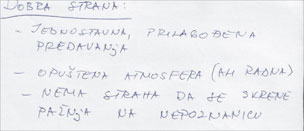 DOBRA STRANA:
- JEDNOSTAVNA, PRILAGOĐENA
PREDAVANJA
- OPUŠTENA ATMOSFERA (ALI RADNA)
- NEMA STRAHA DA SE SKRENE
PAŽNJA NA NEPOZNANICU